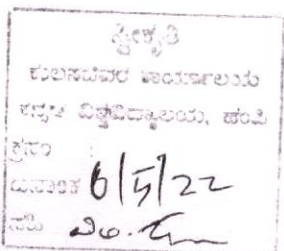 ಸ್ವೀಕೃತಿ
ಕುಲಸಚಿವರ ಕಾರ್ಯಾಲಯ
ಕನ್ನಡ ವಿಶ್ವವಿದ್ಯಾಲಯ, ಹಂಪಿ
ಕ್ರಸಂ :
ದಿನಾಂಕ 6/5/22
ಸಹಿ